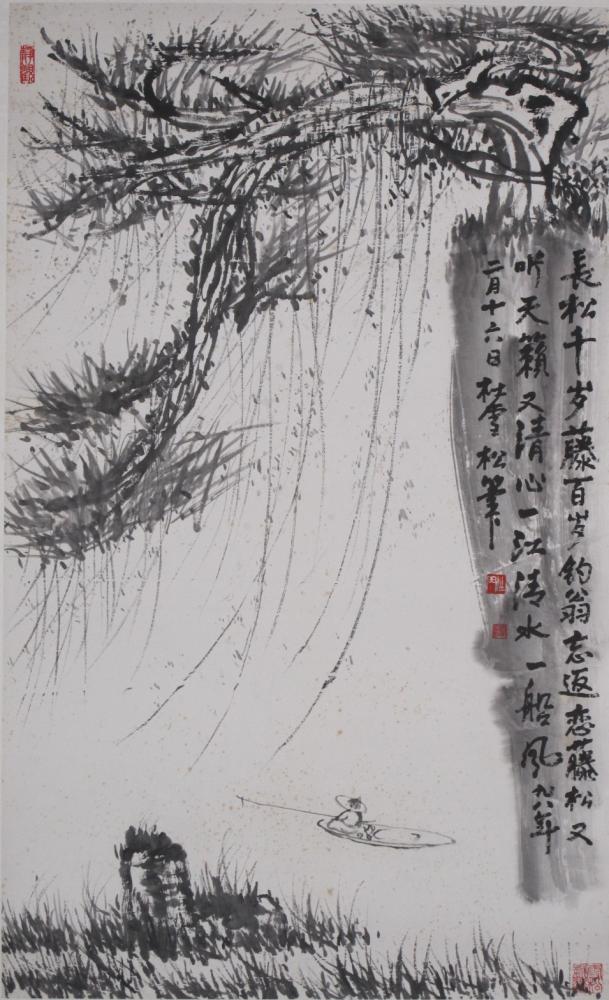 長松千岁藤百岁钓翁忘返恋藤松又
听天籟又清心一江清水一船风九八年
二月十六日 杜雪松笔